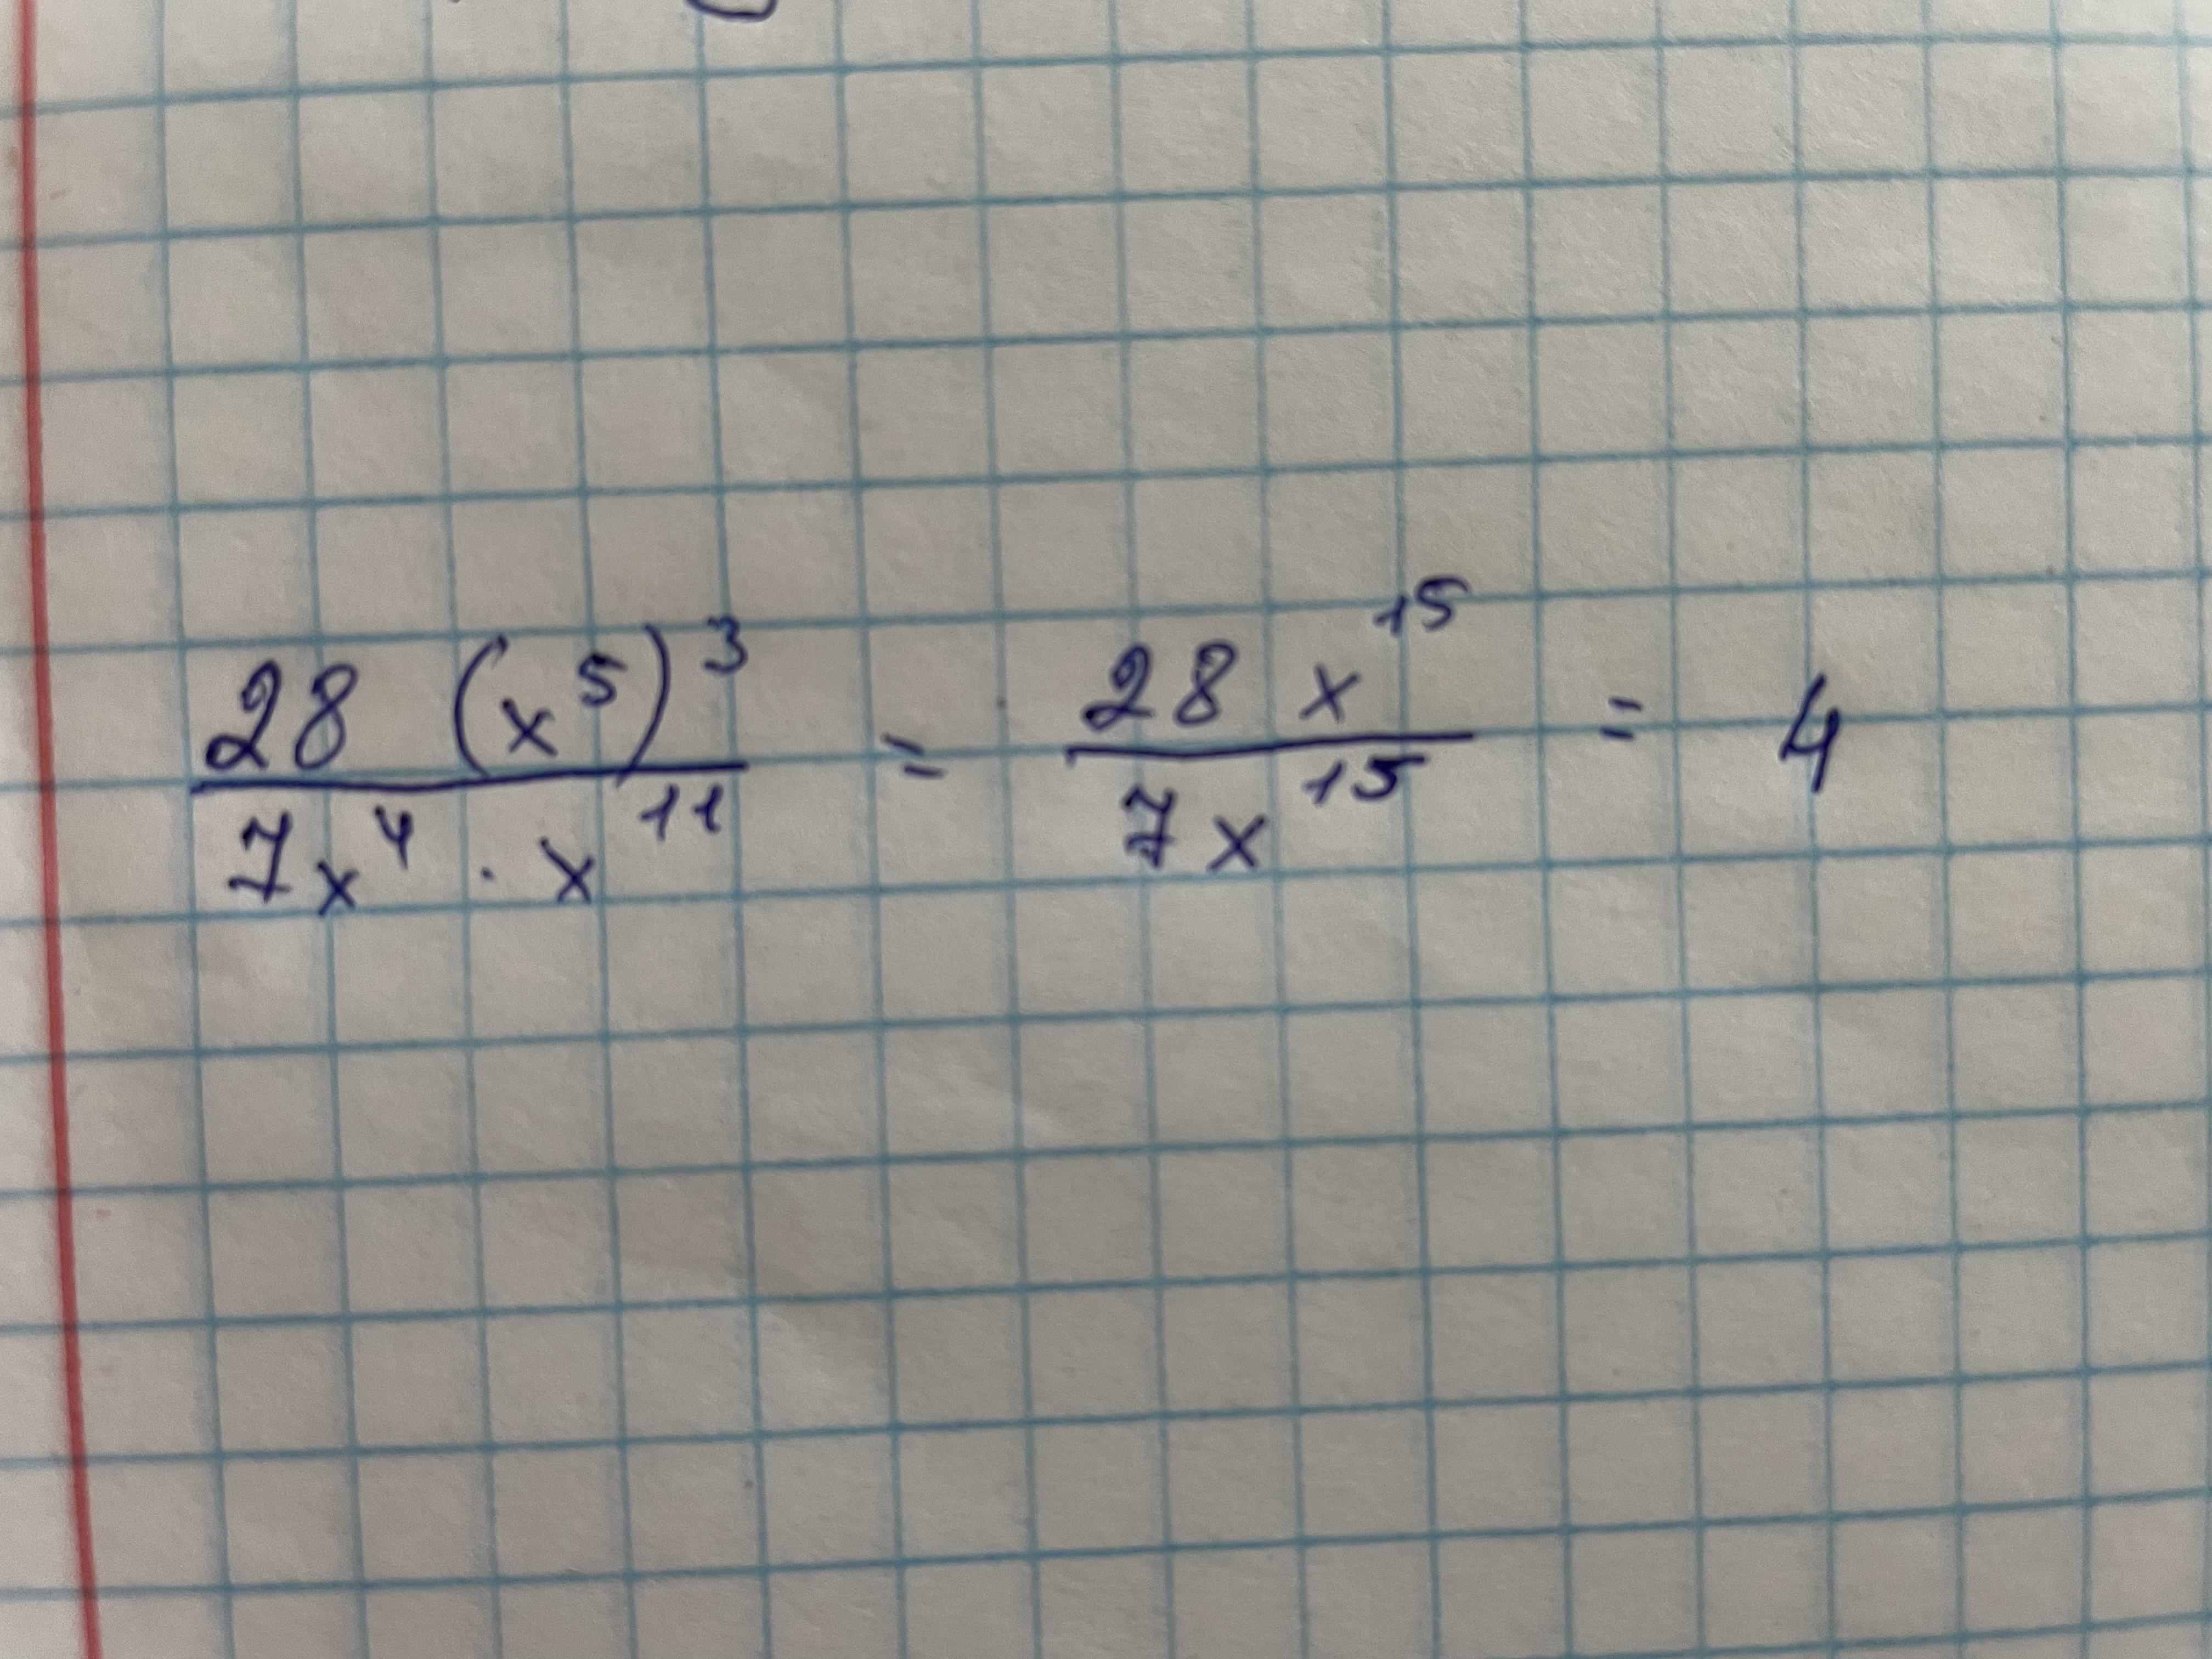 28 (x⁵)³ / 7x⁴ · x¹¹ = 28 x¹⁵ / 7x¹⁵ = 4